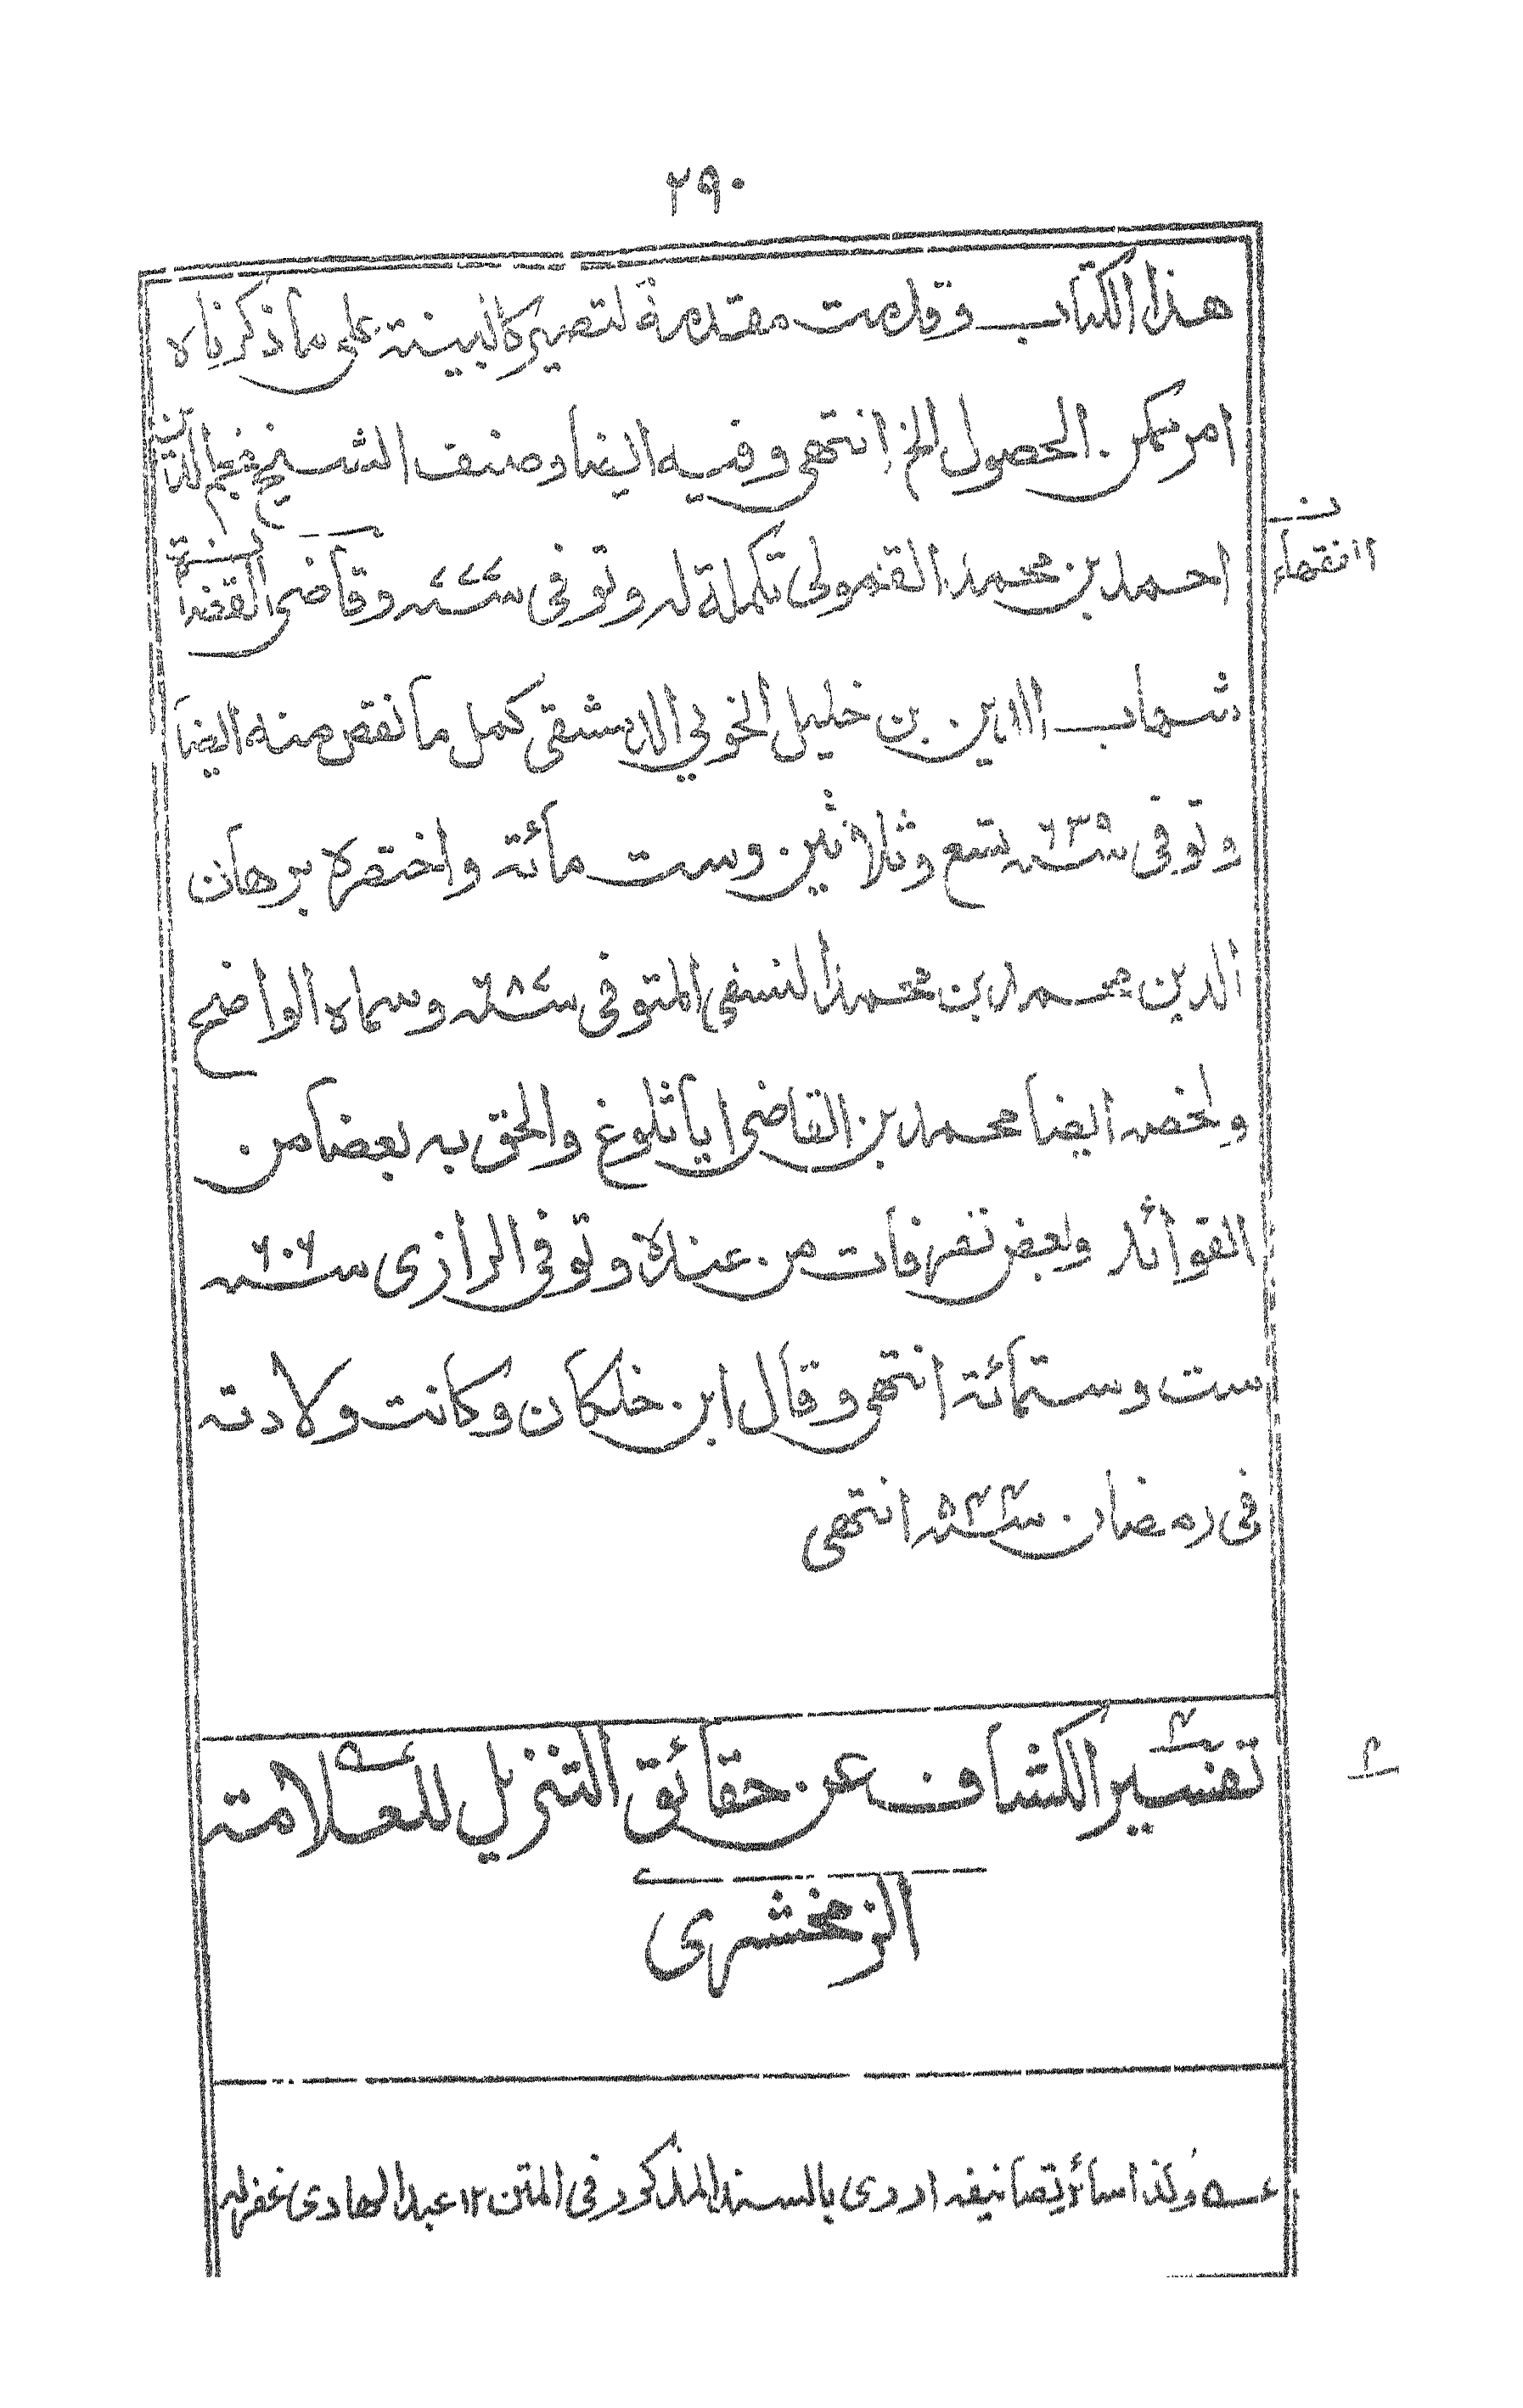 ٢٩٠
هذا الكتاب وقدمت مقدمة لتصيركالبينة على ما ذكرناه
امر ممكن الحصول الخ انتهى وفيه ايضا وصنف الشيخ نجم الدين
احمد بن محمد القمولى تكملة له وتوفى سنة ٧٧٧ وقاضى القضاة
شهاب الدين بن خليل الخوبي الدمشقى كمل ما نقص منه ايضا
وتوفى سنة ٦٣٩ تسع وثلاثين وست مائة واختصره برهان
الدين محمد بن محمد النسفى المتوفى سنة ٦٨٧ وسماه الواضح
ولخصه ايضا محمد بن القاضى اياثلوغ والحق به بعضا من
الفوائد وبعض تصرفات من عنده وتوفى الرازى سنة ٦٠٦
ست وستمائة انتهى وقال ابن خلكان وكانت ولادته
فى رمضان سنة ٥٤٤ انتهى
تفسير الكشاف عن حقائق التنزيل للعلامة
الزمخشرى
عــه وكذا سائر تصانيفه اروى بالسند المذكور فى المتن ١٢ عبد الهادى غفرله